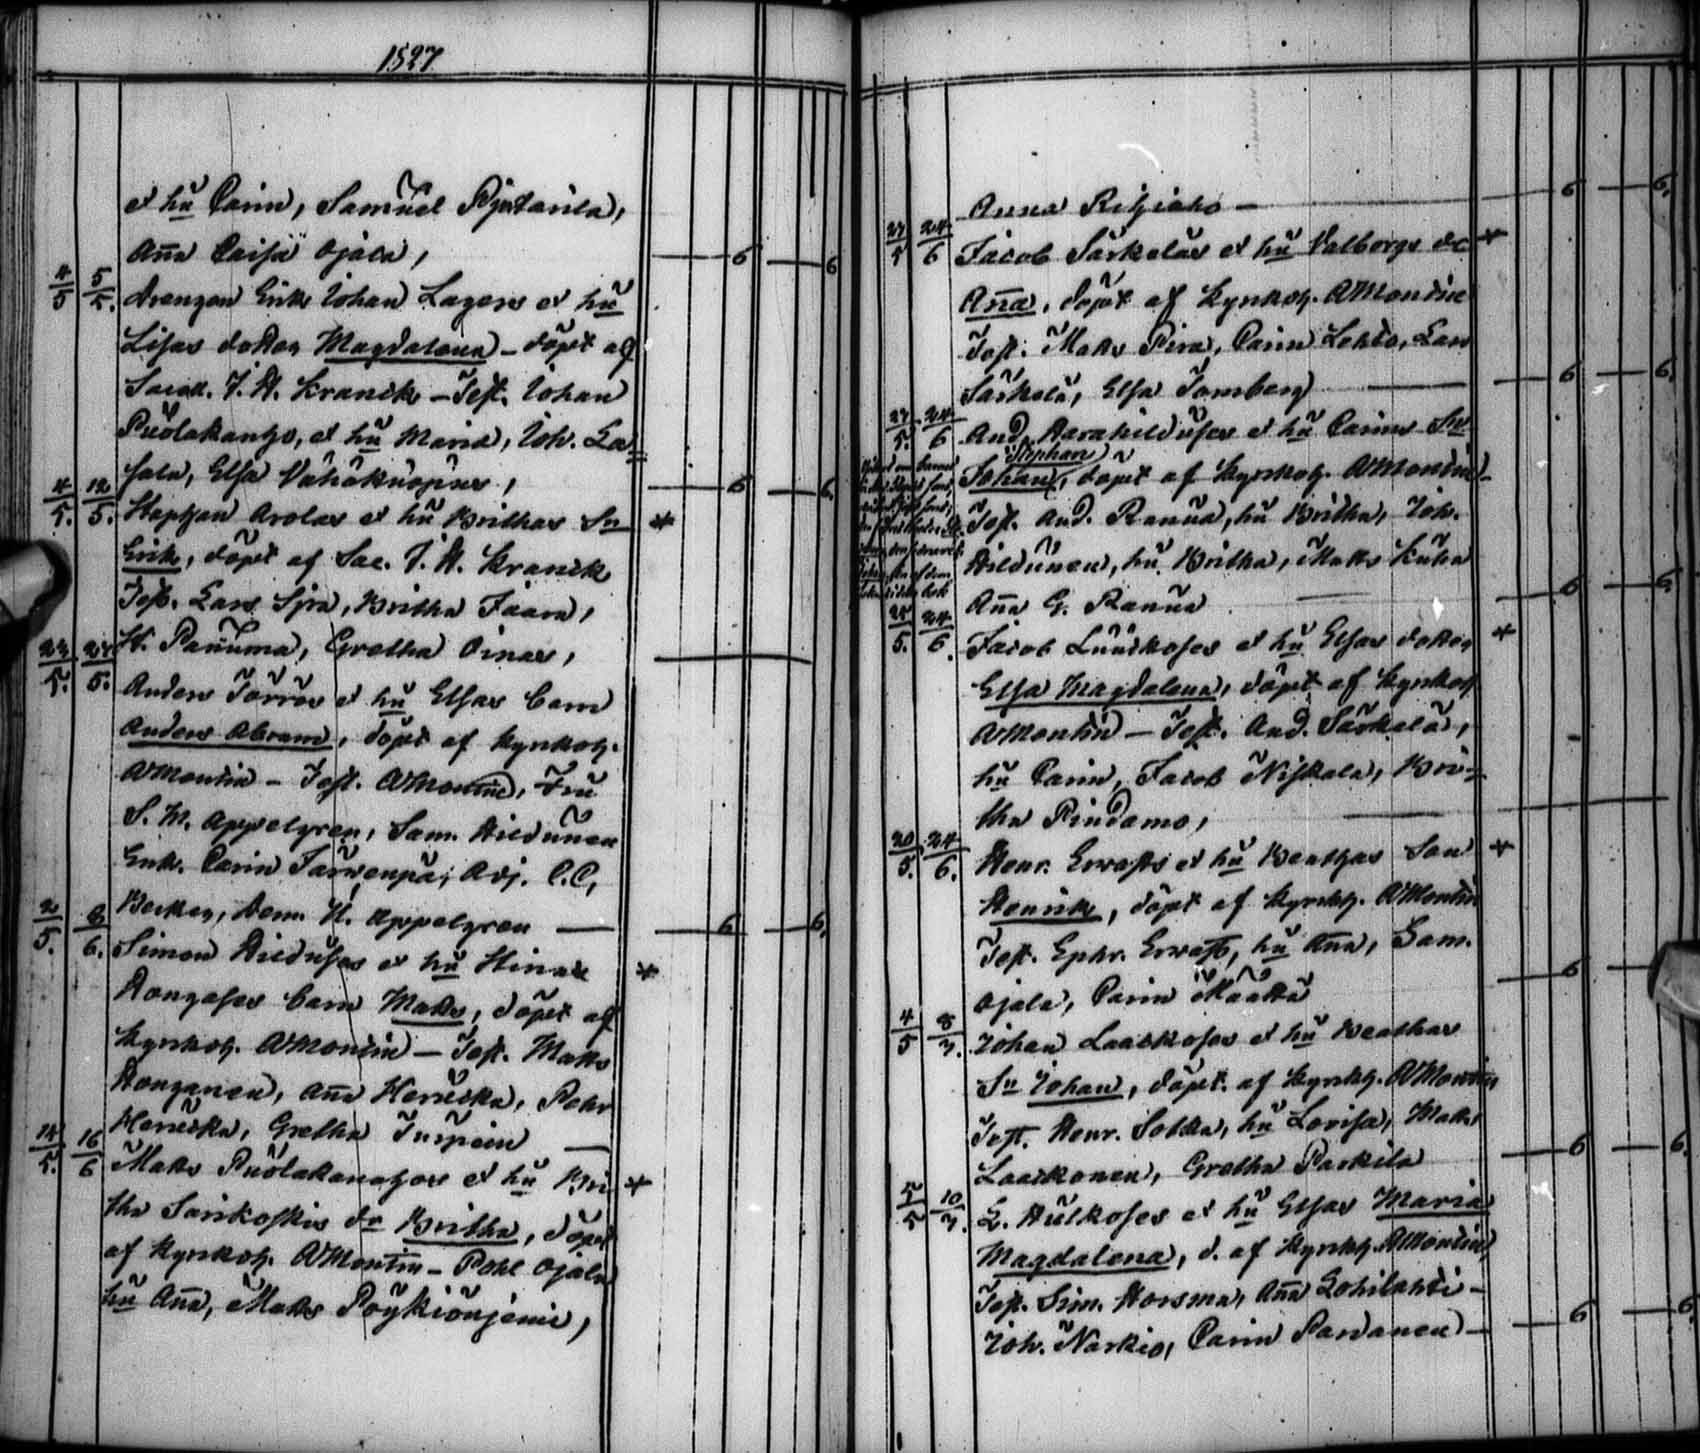 1827
et hu Carin, Samuel
Aña Caisa Ojala,
4/5 5/5. Drengen Eriks Johan Lagers et hu
Lisas dotter Magdalena – döpt af
Sacell. J. H. Kranck – Test. Johan
Puolakango, et hu Maria, Joh. La=
sala, Elsa
4/5. 12/5. Stephan Arolas et hu Brithas Sn
Erik, döpt af Sac. J. H. Kranck
Test. Lars Sjra, Britha Jaara,
H. Pañuma, Gretha Oinas,
5. 5. Anders Törrös et hu Elsas barn
Anders Abram, döpt af Kyrkoh.
AMontin – Test. AMontin, Fru
S. M. Appelgren, Sam. Hildunen
Enk. Carin Tarwenpä, Adj. C. C.
Becker, Dem. H. Appelgren — 6 6.
2/5. 8/6. Simon Hildusas et hu Stinas
Hongases barn Mats, döpt af
Kyrkoh. AMontin – Test. Mats
Honganen, Aña Hervska, Pehr
Hervska, Gretha
14/5. 16/6 Mats Puolakanahos et hu Bri
tha Sarikoskis dr Britha, döpt
af Kyrkoh. AMontin – Pehl Ojala
hu Aña, Mats Pöykiöniemi,
Anna — 6 — 6.
27/5 24/6 Jacob Särkelas et hu Valborgs dr
Aña, döpt af Kyrkoh. AMontin
Test. Mats Pira, Carin Lehto, Lars
Särkelä, Elsa Tornberg — 6 — 6.
27/5. 24/6 And. Harahildusas et hu Carins Sn
Stephan
Johan, döpt af Kyrkoh. AMontin –
Test. And. Ranua, hu Britha, Joh.
Hildunen, hu Britha, Mats Kuha
Aña G. Ranua — 6 — 6.
25/5. 24/6. Jacob Luuskoses et hu Elsas dotter
Elsa Magdalena, döpt af Kyrkoh
AMontin – Test. And. Särkelä,
hu Carin, Jacob Niskala, Bri=
tha Pindamo,
20/5. 24/6. Henr. Erwasts et hu Beathas Son
Henrik, döpt af Kyrkh. AMontin
Test. Ephr. Erwast, hu Aña, Sam.
Ojala, Carin Määttä
4/5 8/7. Johan Laaskoses et hu Beathas
Sn Johan, döpt af Kyrkh. AMontin
Test. Henr. Sotka, hu Lovisa, Mats
Laaskonen, Gretha Parkila
5/5 10/7. L. Hulkoses et hu Elsas Maria
Magdalena, d. af Kyrkh. AMontin
Test. Sim. Horsma, Aña Lohilahti –
Joh. Narkio, Carin Pardanen –